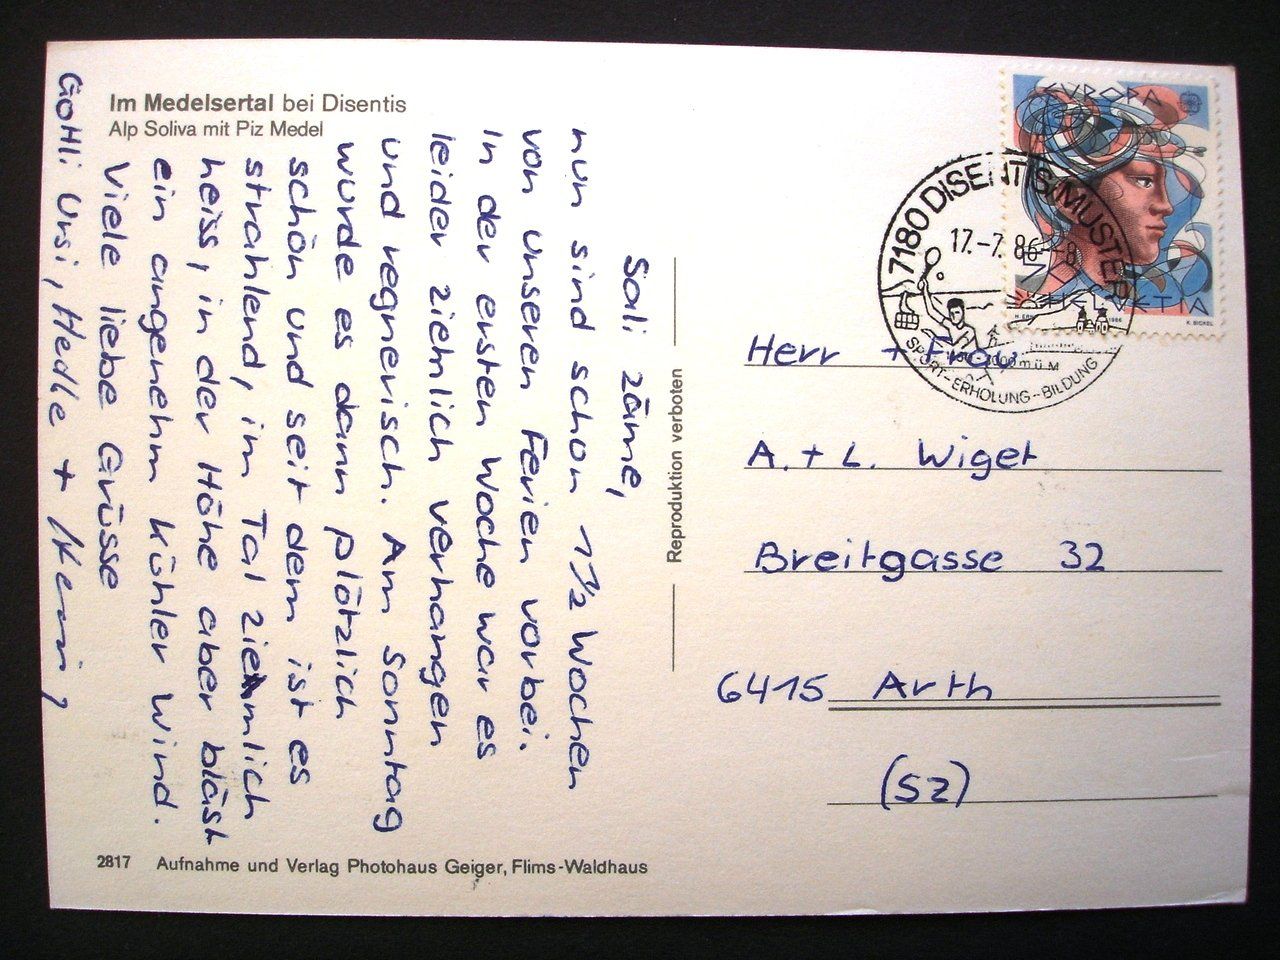 Im Medelsertal bei Disentis
Alp Soliva mit Piz Medel
Sali zäme,
nun sind schon 1½ Wochen
von unseren Ferien vorbei.
In der ersten Woche war es
leider ziemlich verhangen
und regnerisch. Am Sonntag
wurde es dann plötzlich
schön und seit dem ist es
strahlend, im Tal ziemlich
heiss, in der Höhe aber bläst
ein angenehm kühler Wind.
Viele liebe Grüsse
Ursi, Hedle +
2817 Aufnahme und Verlag Photohaus Geiger, Flims-Waldhaus
Reproduktion verboten
EUROPA
HELVETIA
7180 DISENTIS/MUSTER
17.-7.86-8
SPORT-ERHOLUNG-BILDUNG
Herr + Frau
A. + L. Wiget
Breitgasse 32
6415 Arth
(SZ)